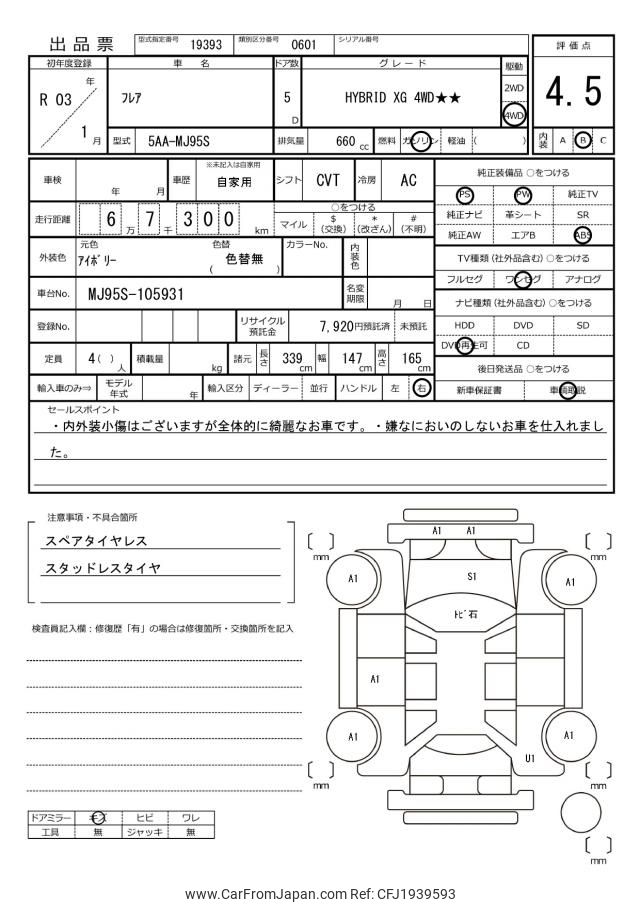 出品票 型式指定番号 19393 類別区分番号 0601 シリアル番号
評価点
4.5
内装 A B C
初年度登録 車名 ドア数 グレード 駆動
R 03 年 ﾌﾚｱ 5 D HYBRID XG 4WD★★ 2WD
4WD
1 月 型式 5AA-MJ95S 排気量 660 cc 燃料 ガソリン 軽油 ( )
車検 年 月 車歴 ※未記入は自家用 自家用 シフト CVT 冷房 AC
走行距離 6 万 7 千 3 0 0 km ○をつける
マイル $ (交換) * (改ざん) # (不明)
外装色 元色 ｱｲﾎﾞﾘｰ 色替 ( 色替無 ) カラーNo. 内装色
車台No. MJ95S-105931 名変期限 月 日
登録No. リサイクル預託金 7,920円預託済 未預託
定員 4( ) 人 積載量 kg 諸元 長さ 339 cm 幅 147 cm 高さ 165 cm
輸入車のみ⇒ モデル年式 年 輸入区分 ディーラー 並行 ハンドル 左 右
純正装備品 ○をつける
PS PW 純正TV
純正ナビ 革シート SR
純正AW エアB ABS
TV種類 (社外品含む) ○をつける
フルセグ ワンセグ アナログ
ナビ種類 (社外品含む) ○をつける
HDD DVD SD
DVD再生可 CD
後日発送品 ○をつける
新車保証書 車輌取説
セールスポイント
・内外装小傷はございますが全体的に綺麗なお車です。・嫌なにおいのしないお車を仕入れまし
た。
注意事項・不具合箇所
スペアタイヤレス
スタッドレスタイヤ
検査員記入欄：修復歴「有」の場合は修復箇所・交換箇所を記入
ドアミラー キズ ヒビ ワレ
工具 無 ジャッキ 無
A1 A1
mm mm
A1 S1 A1
ﾄﾋﾞ石
A1
A1 A1
U1
mm mm
mm
www.CarFromJapan.com Ref: CFJ1939593